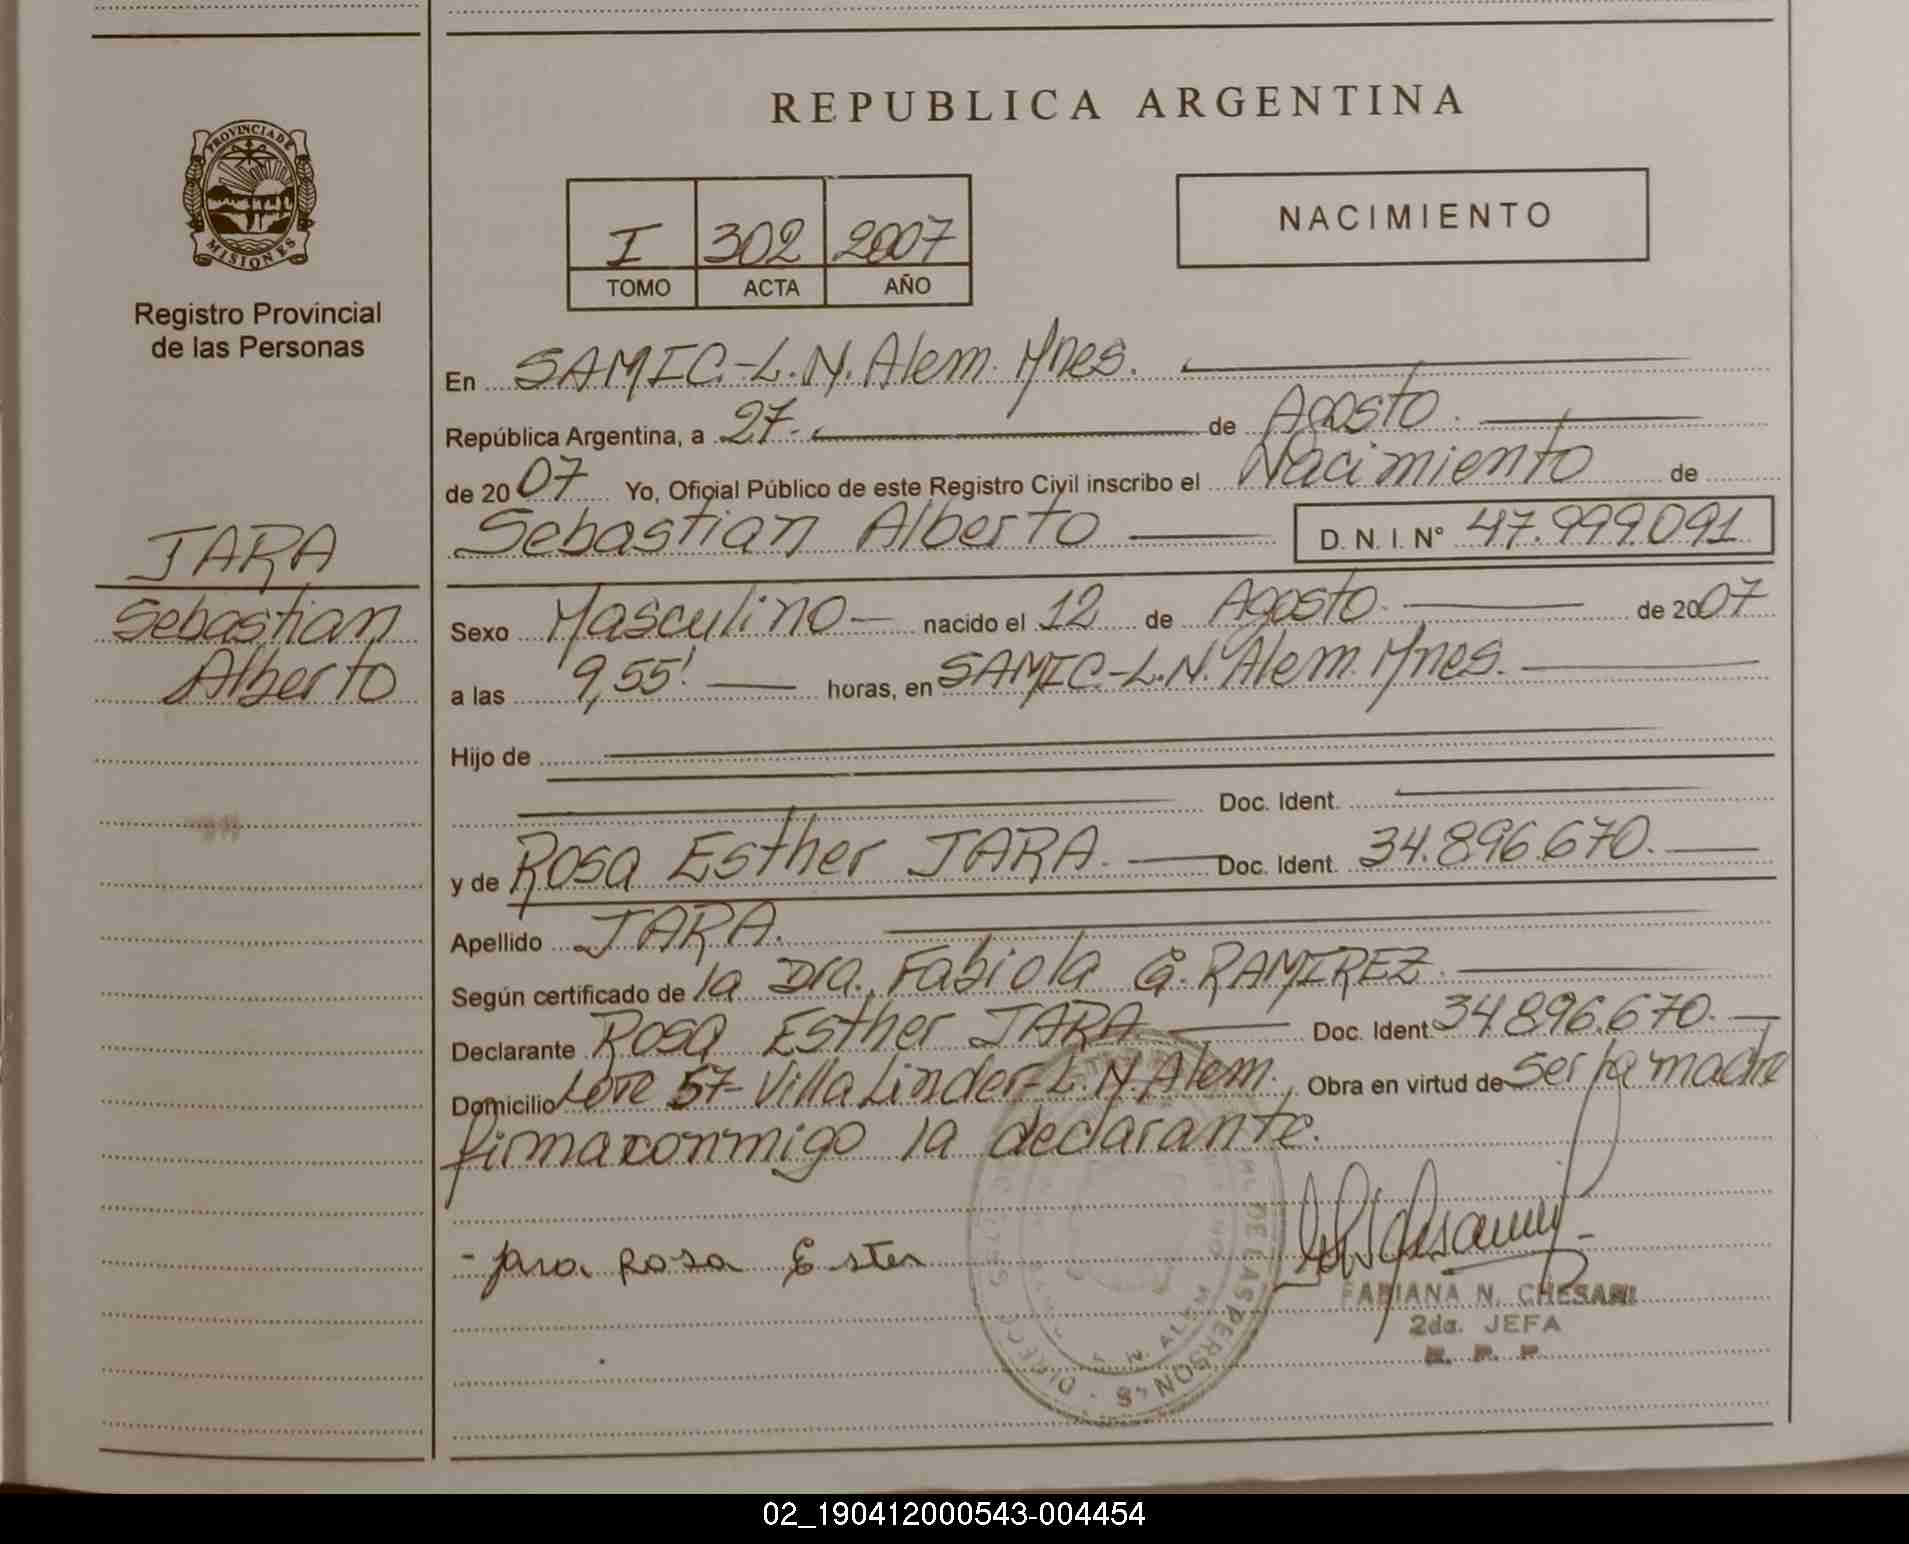 REPUBLICA ARGENTINA
PROVINCIA DE
MISIONES
Registro Provincial
de las Personas
I 302 2007
TOMO ACTA AÑO
NACIMIENTO
En SAMIC-L.N. Alem. Mnes.
República Argentina, a 27. de Agosto.
de 2007 Yo, Oficial Público de este Registro Civil inscribo el Nacimiento de
Sebastian Alberto D. N. I. N° 47.999.091
JARA
Sebastian
Alberto
Sexo Masculino nacido el 12 de Agosto. de 2007
a las 9,55' horas, en SAMIC-L.N. Alem. Mnes.
Hijo de
Doc. Ident.
y de Rosa Esther JARA. Doc. Ident. 34.896.670.
Apellido JARA.
Según certificado de la Dra. Fabiola G. RAMIREZ.
Declarante Rosa Esther JARA Doc. Ident. 34.896.670.
Domicilio Lote 57- Villa Linder-L.N. Alem. Obra en virtud de ser la madre
firma conmigo la declarante.
- Jara Rosa Ester
FABIANA N. CHESANI
2da. JEFA
R. P. P.
DE LAS PERSONAS
N. ALEM
02_190412000543-004454